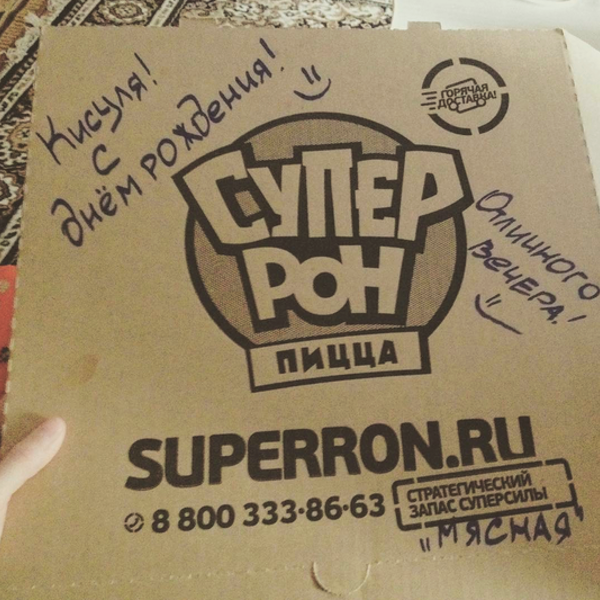 Кисуля!
С
днём рождения!
ГОРЯЧАЯ
ДОСТАВКА!
СУПЕР
РОН
ПИЦЦА
Отличного
вечера!
SUPERRON.RU
8 800 333·86·63
СТРАТЕГИЧЕСКИЙ
ЗАПАС СУПЕРСИЛЫ
„МЯСНАЯ"